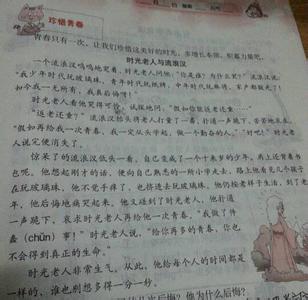 月 日
珍惜青春
青春只有一次，让我们珍惜这美好的时光，多增长本领，积蓄力量吧。
时光老人与流浪汉
一个流浪汉呜呜地哭着。时光老人问他：“你是谁？为什么哭？”流浪汉说：
“我少年时代玩玻璃珠，青年时代玩纸牌，中年时代玩麻将，家产都败光了！
如今我一无所有，我真后悔呀！”
时光老人看他哭得可怜，试探地问：“假如你能返老还童……”
“返老还童？”流浪汉抬头将老人打量了一番，扑通一声跪下，苦苦地哀求，
“假如再给我一次青春，我一定从头学起，做一个勤奋的人。”“好吧！”时光老
人说完便消失了。
惊呆了的流浪汉低头一看，自己变成了一个十来岁的少年，肩上还背着书
包呢。他想起刚才的话，便向自己熟悉的一所小学走去。路上他看见几个孩子
在玩玻璃珠，他不觉手痒了，也挤进去玩玻璃珠。他仍按老样子生活，到了老
年，他后悔地痛哭起来。他又碰到了时光老人，他扑通
一声跪下，哀求时光老人再给他一次青春。“我做了件
蠢（chǔn）事！”时光老人说，“给你再多的青春，你也
不会得到真正的生命。”
时光老人非常生气，从此，他给每个人的时间都是
一样的，谁也别想多得一分一秒。
他为什么后悔？